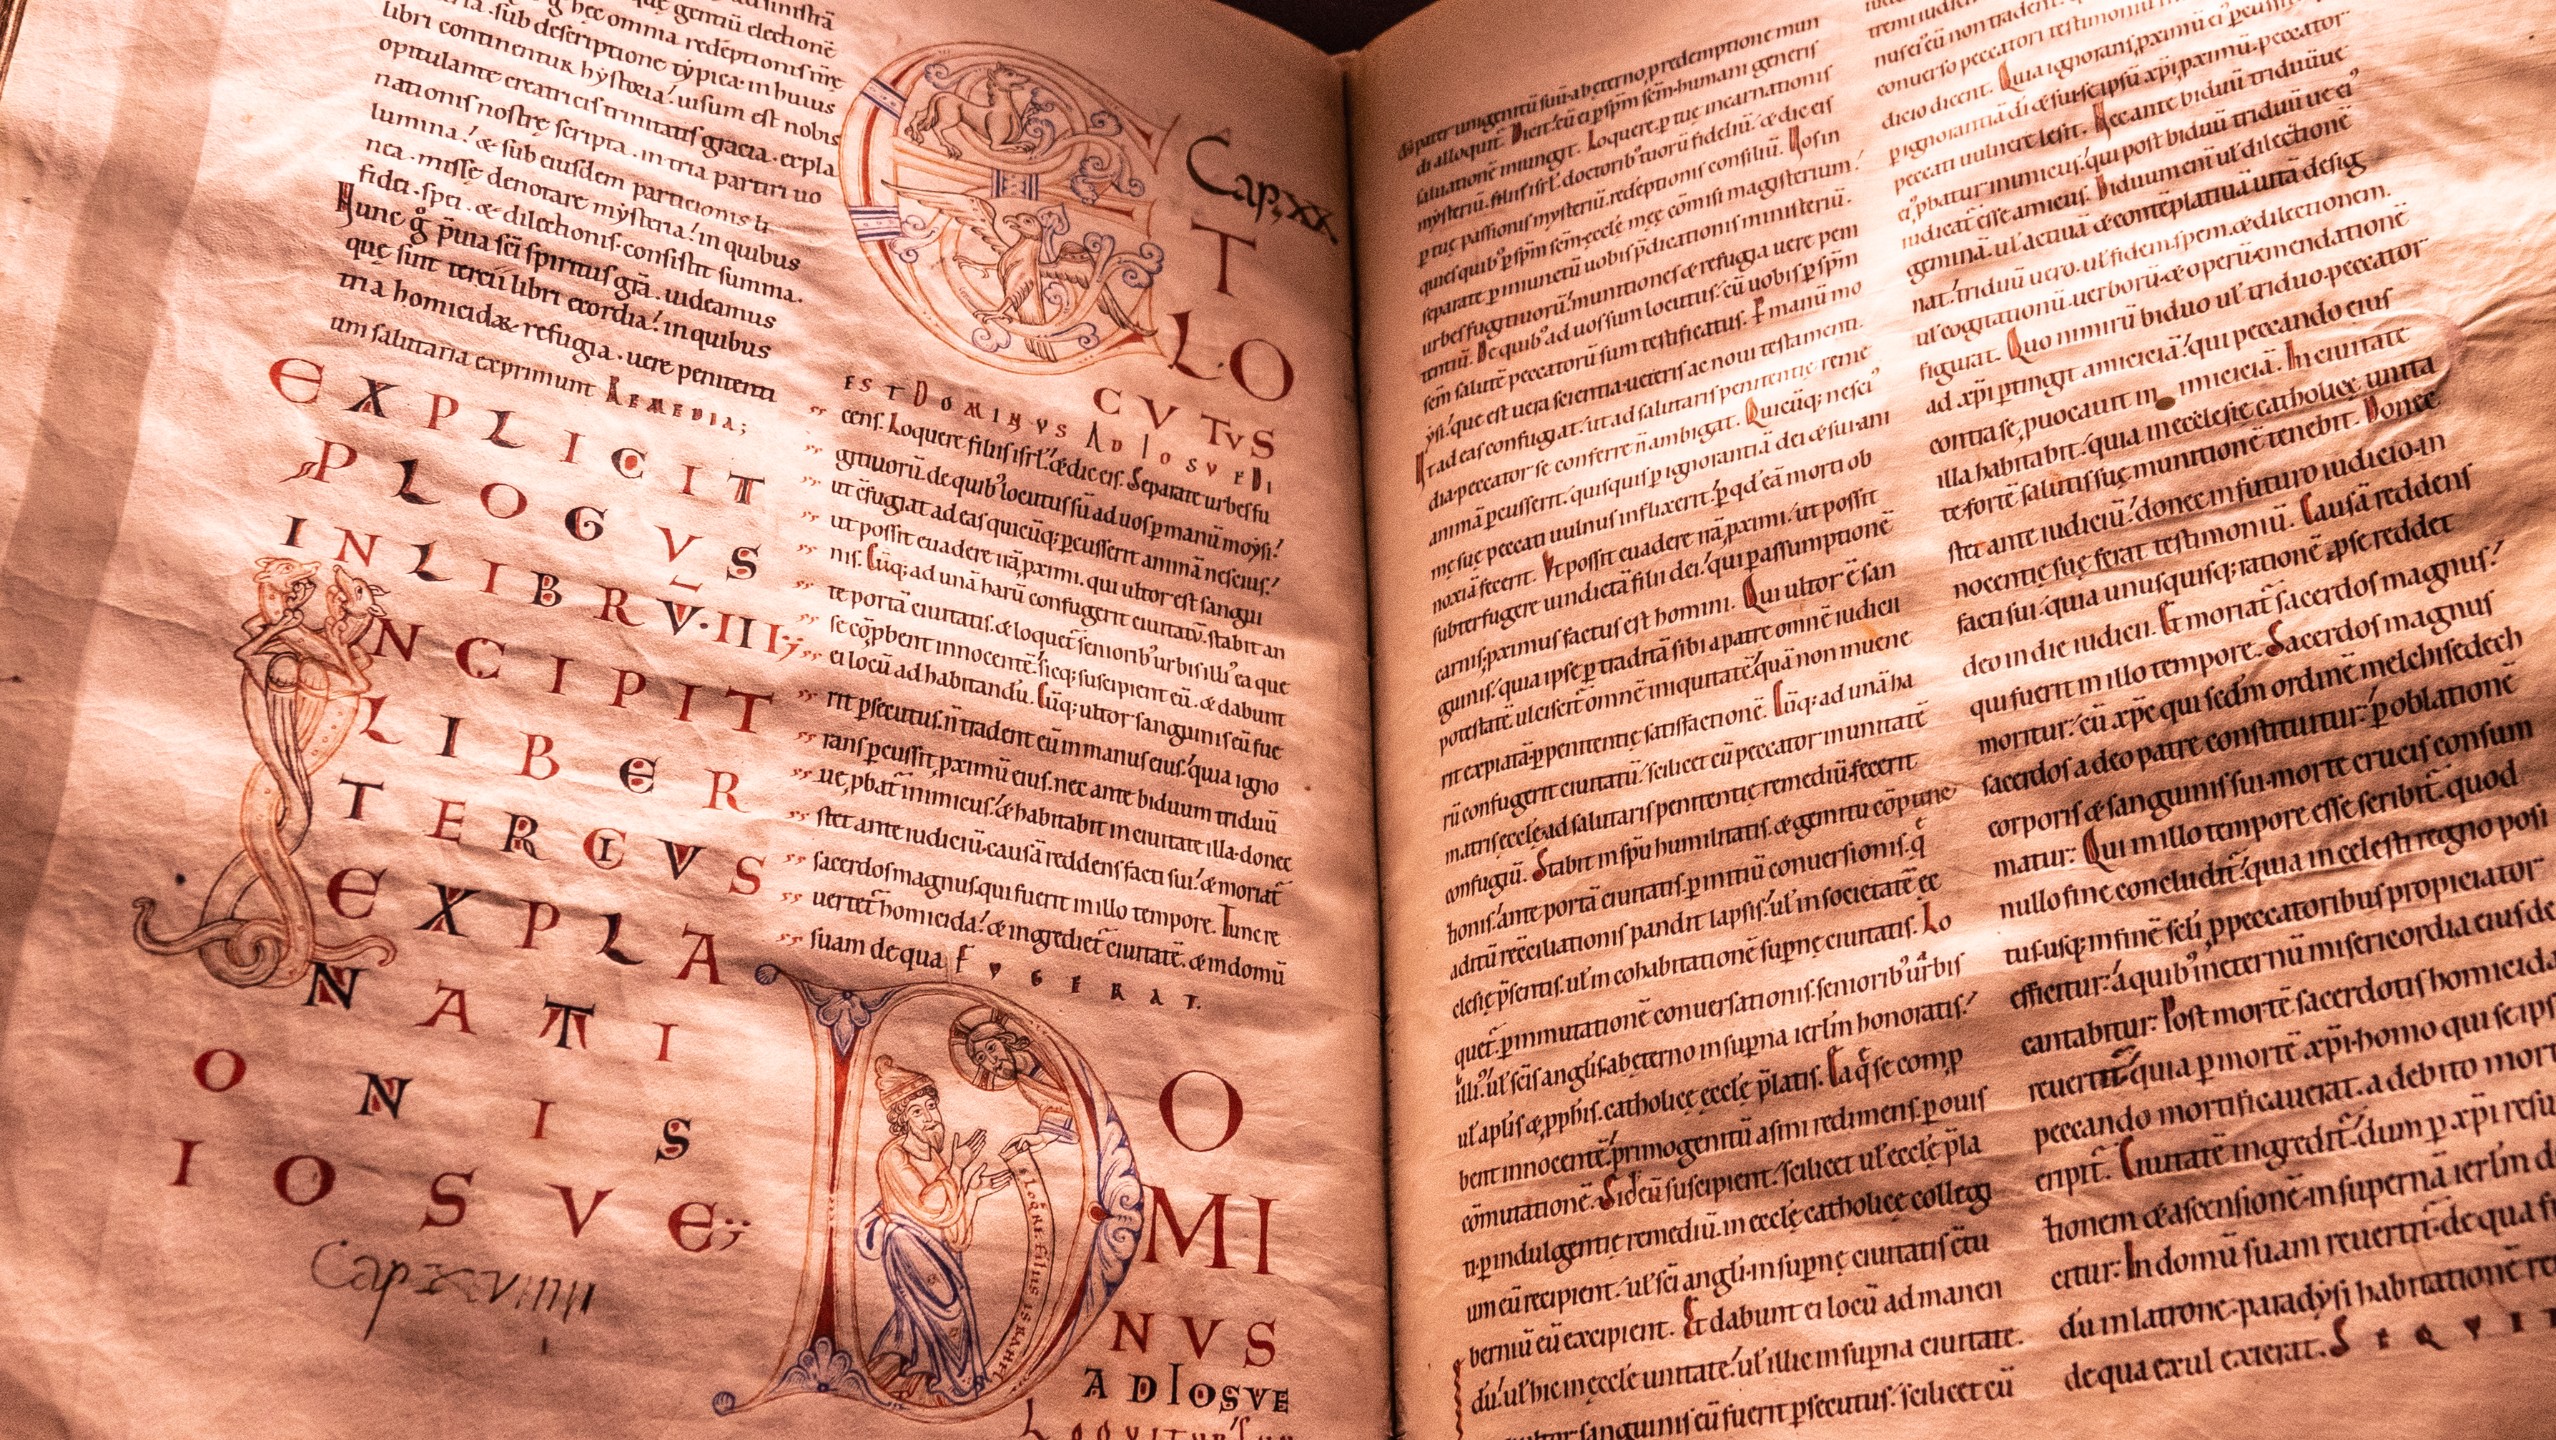 que gentiū electionē
g̊ hęc omnia redēptionis nr̄ę
sub descriptione typica in huius
libri continentur hystoria! uisum est nobis
opitulante creatricis trinitatis gracia expla
nationis nostrę scripta in tria partiri uo
lumina! & sub eiusdem particionis li
nea missę denotare mysteria! in quibus
fidei spei & dilectionis consistit summa.
Nunc g̊ p̄uia sc̄i spiritus grā uideamus
quę sint tercii libri exordia! in quibus
tria homicidaᷓ refugia uere penitenti
um salutaria exprimunt REMEDIA;
EXPLICIT
PLOGVS
IN LIBRV̄·III;
INCIPIT
LIBER
TERCIVS
EXPLA
NATI
ONIS
IOSVE;
Cap xviiii
Cap. xx
ET LO
CVTVS
EST DOMINVS AD IOSVE DI
cens. Loquere filiis isrl̄. & dic eis. Separate urbes fu
gitiuorū de quib' locutus sū ad uos p manū moysi!
ut c̄fugiat ad eas quicūq; pcusserit animā nescius!
ut possit euadere irā pximi. qui ultor est sangui
nis. Cūq; ad unā harū confugerit ciuitatū stabit an
te portā ciuitatis. & loquet̄ seniorib' urbis illi' ea que
se cōpbent innocentē! sicq; suscipient eū. & dabunt
ei locū ad habitandū. Cūq; ultor sanguinis eū fue
rit psecutus. n̄ tradent eū in manus eius! quia igno
rans pcussit pximū eius. nec ante biduum triduū
ue pbat̄ inimicus! & habitabit in ciuitate illa. donec
stet ante iudiciū causā reddens facti sui! & moriat̄
sacerdos magnus. qui fuerit in illo tempore. Tunc re
uertet̄ homicida! & ingrediet̄ ciuitatē. & in domū
suam de qua FVGERAT.
LOQVERE FILIIS ISRAHEL
DOMI
NVS
AD IOSVE
ds̄ pater unigenitū suū ab ęterno predemptione mun
di alloquit̄. Dicit̄ eū ei p sp̄m sc̄m humani generis
saluationē iniungit. Loquere p tuę incarnationis
mysteriū filiis isrl̄. doctorib' tuorū fidelium! & dic eis
p tuę passionis mysteriū redēptionis consiliū.
separate p inmunetū uobis p̄dicationis ministeriū.
urbes fugitiuorū! munitiones & refugia uere peni
tentiū. De quib' ad uos sum locutus! eū uobis p sp̄m
sc̄m salutē peccatorū sum testificatus. P manū mo
ysi! que est uera scientia ueteris ac noui testamenti.
Ut ad eas confugiat! ut ad salutaris penitentię reme
dia peccator se conferre n̄ ambigat. Quicūq; nesci'
animā pcusserit! quisquis p ignorantiā dei & suī ani
mę suę peccati uulnus inflixerit! p qd' eā morti ob
noxiā fecerit. Vt possit euadere irā pximi! ut possit
subterfugere uindictā filii dei! qui p assumptionē
carnis pximus factus est homini. Qui ultor ē san
guinis! quia ipse p traditā sibi a patre omnē iudicii
potestatē ulciscit̄ omnē iniquitatē! quā non inuene
rit expiatā p penitentię satisfactionē. Cūq; ad unā ha
rū confugerit ciuitatū! scilicet eū peccator in unitatē
matris eccl̄ę ad salutaris penitentię remediū fecerit
confugiū. Stabit in sp̄u humilitatis & gemitu cōpunc
tionis! ante portā ciuitatis p initiū conuersionis. q̄
aditū recōciliationis pandit lapsis! ul' in societatē ec
clesię p̄sentis. ul' in cohabitationē supnę ciuitatis. Lo
quet̄ p inmutationē conuersationis. seniorib' urbis
illi'! ul' sc̄is anglis ab ęterno in supna ierlm̄ honoratis!
ul' aplis & pphis. catholicę eccl̄ę p̄latis. Ea q̄ se comp
bent innocentē! primogenitū asini redimens p ouis
cōmutationē. Sic eū suscipient! scilicet ul' eccl̄ę p̄la
ti p indulgentię remediū in eccl̄ę catholicę collegi
um eū recipient. ul' sc̄i angli in supnę ciuitatis cetū
berniū eū excipient. Et dabunt ei locū ad manen
dū! ul' hic in eccl̄ę unitate! ul' illic in supna ciuitate.
ultor sanguinis eū fuerit psecutus! scilicet eū
nus ei' eū non tradent!
conuerso peccatori testimoniū
dicio dicent. Quia ignorans pximū ei' pcussit.
p ignorantiā dī & sui seipsū xp̄i pximū peccator
peccati uulnere lesit. Nec ante biduū triduūue
ei' pbatur inimicus! qui post biduū triduūue ei'
iudicat̄ esse amicus. Biduum enī ul' dilectionē
geminā. ul' actiuā & contēplatiuā uitā desig
nat! triduū uero. ul' fidem spem. & dilectionem.
ul' cogitationū uerborū & operū emendationē
figurat. Quo nimirū biduo ul' triduo peccator
ad xp̄i ptingit amiciciā! qui peccando eius
contra se puocauit inimiciciā. In ciuitate
illa habitabit! quia in ecclesię catholicę unita
te fortē salutis suę munitionē tenebit. Donec
stet ante iudiciū! donec in futuro iudicio in
nocentię suę ferat testimoniū. Causā reddens
facti sui! quia unusquisq; rationē p se reddet
deo in die iudicii. Et moriat̄ sacerdos magnus!
qui fuerit in illo tempore. Sacerdos magnus
moritur! eū xp̄c qui sedm̄ ordinē melchisedech
sacerdos a deo patre constituitur! p oblationē
corporis & sanguinis sui morte crucis consum
matur. Qui in illo tempore esse scribit̄! quod
nullo fine concludit̄! quia in celesti regno posi
tus usq; in finē sc̄li p peccatoribus propiciator
efficitur! a quib' in ęternū misericordia eiusdē
cantabitur. Post mortē sacerdotis homicida
reuertit̄! quia p mortē xp̄i homo qui seips
peccando mortificauerat. a debito mort
eripit̄. Ciuitatē ingredit̄! dum p xp̄i resu
tionem & ascensionē in supernā ierlm̄
ertur! In domū suam reuertit̄ de qua
dum latrone paradysi habitationē
de qua exul exierat. SEQVIT